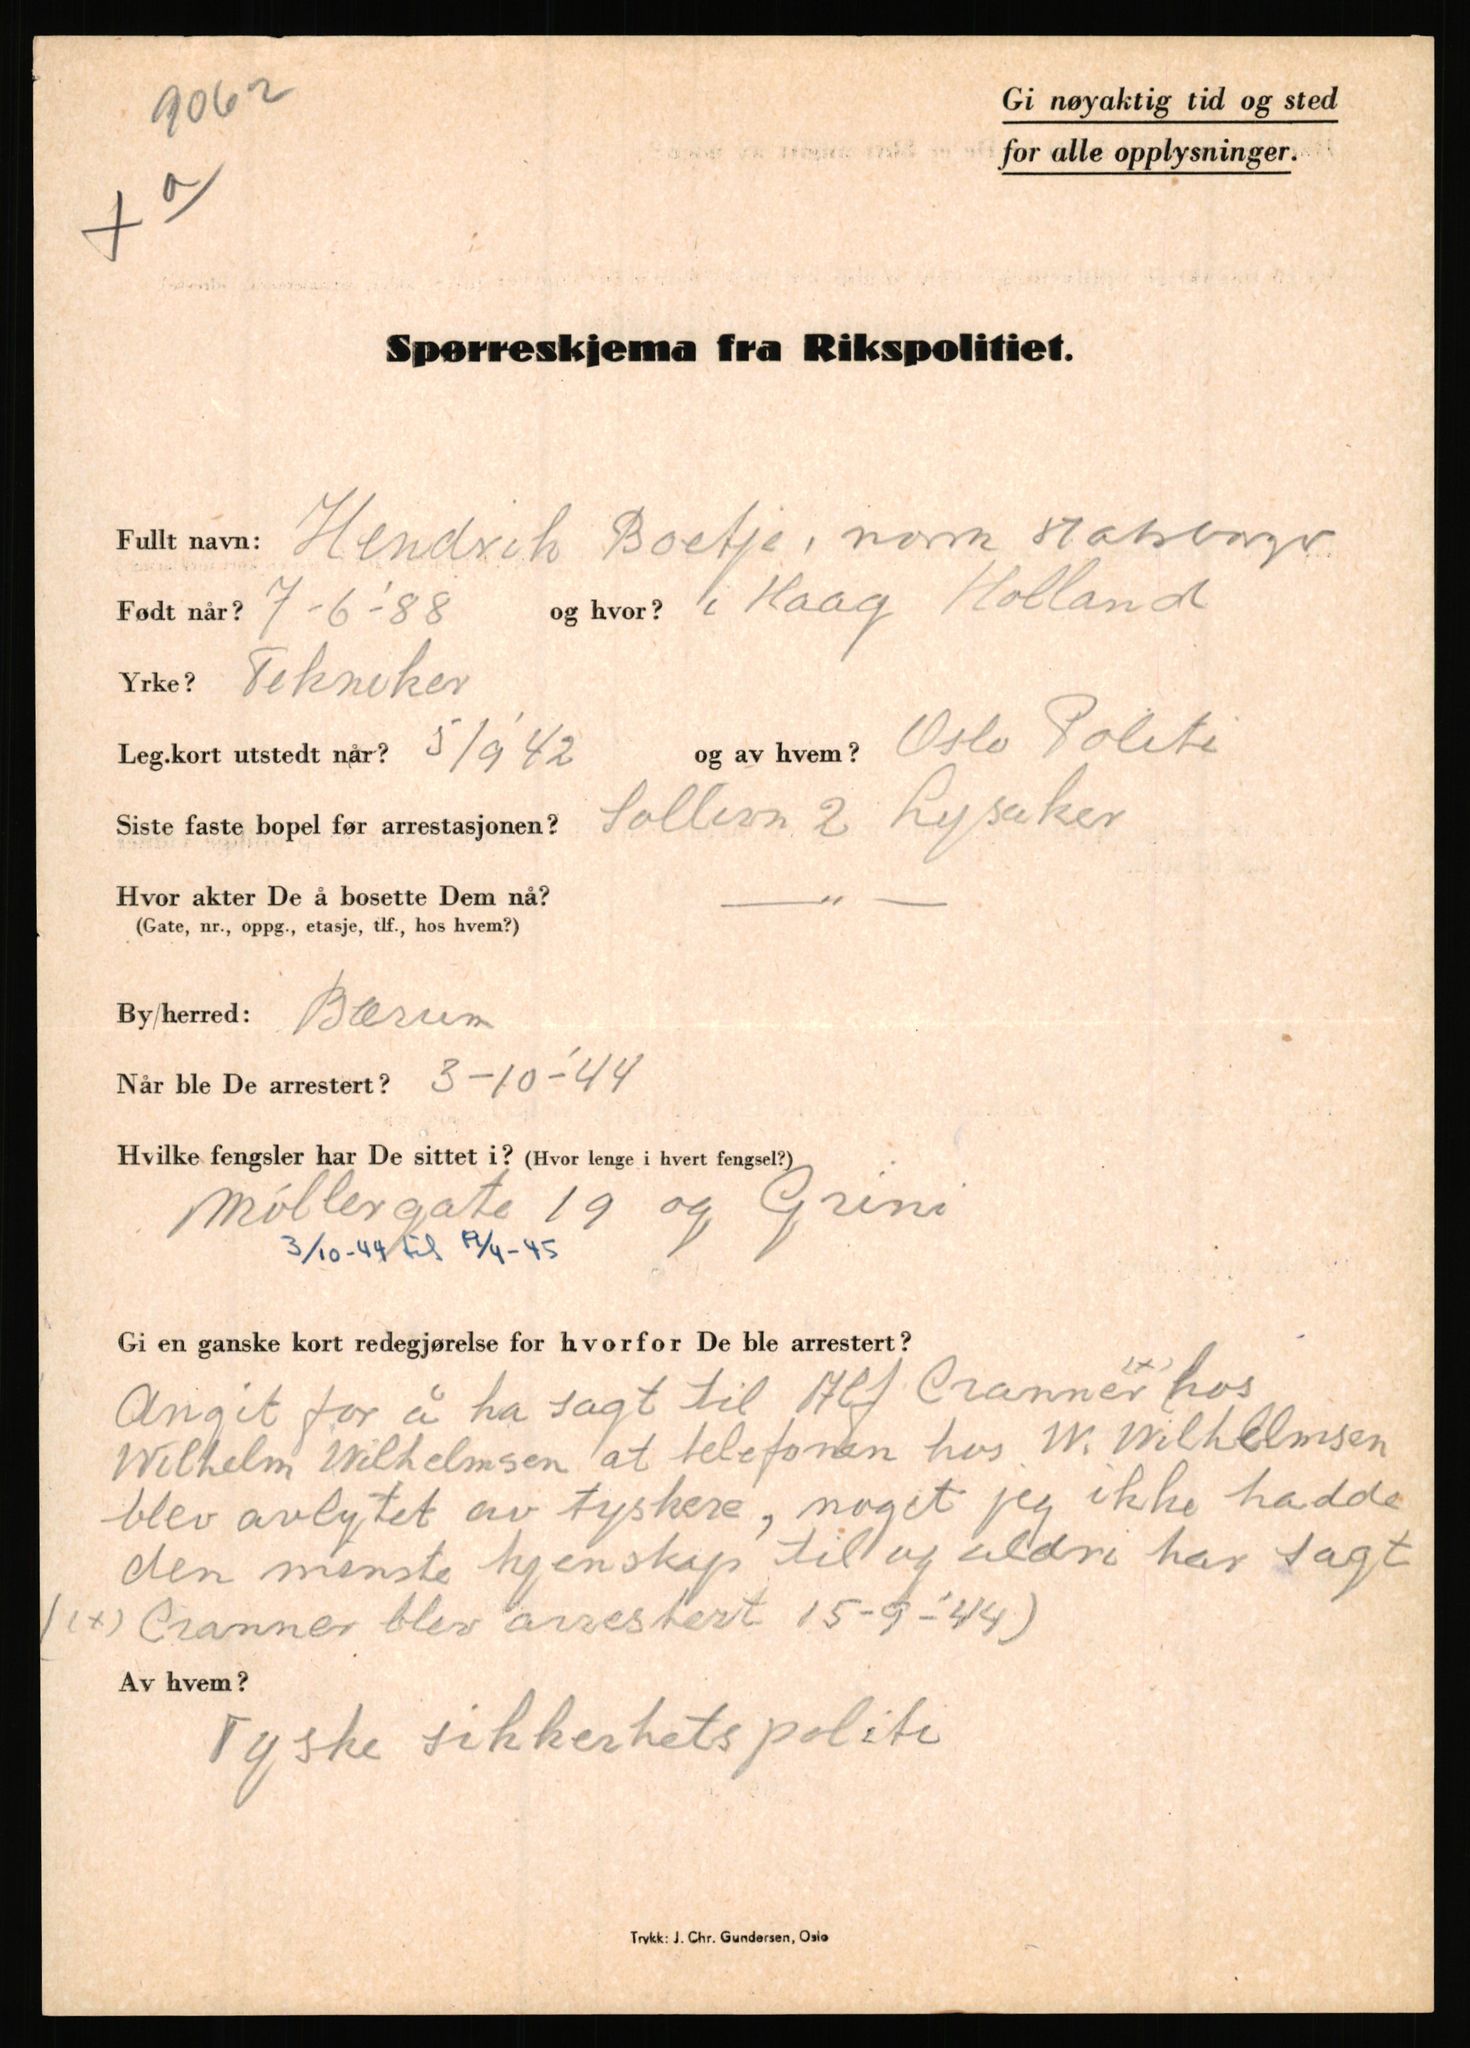 9062
Gi nøyaktig tid og sted
for alle opplysninger.
Spørreskjema fra Rikspolitiet.
Fullt navn: Hendrik Boetje, norsk statsborger
Født når? 7-6-'88 og hvor? i Haag Holland
Yrke? Tekniker
Leg.kort utstedt når? 5/9 '42 og av hvem? Oslo Politi
Siste faste bopel før arrestasjonen? Sollivn 2 Lysaker
Hvor akter De å bosette Dem nå? — " —
(Gate, nr., oppg., etasje, tlf., hos hvem?)
By/herred: Bærum
Når ble De arrestert? 3-10-'44
Hvilke fengsler har De sittet i? (Hvor lenge i hvert fengsel?)
Møllergate 19 og Grini
3/10-44 til /4-45
Gi en ganske kort redegjørelse for hvorfor De ble arrestert?
Angit for å ha sagt til Alf Cranner (x) hos
Wilhelm Wilhelmsen at telefonen hos W. Wilhelmsen
blev avlytet av tyskere, noget jeg ikke hadde
den minste kjenskap til og aldri har sagt
((x) Cranner blev arrestert 15-9-'44)
Av hvem?
Tyske sikkerhetspoliti
Trykk: J. Chr. Gundersen, Oslo